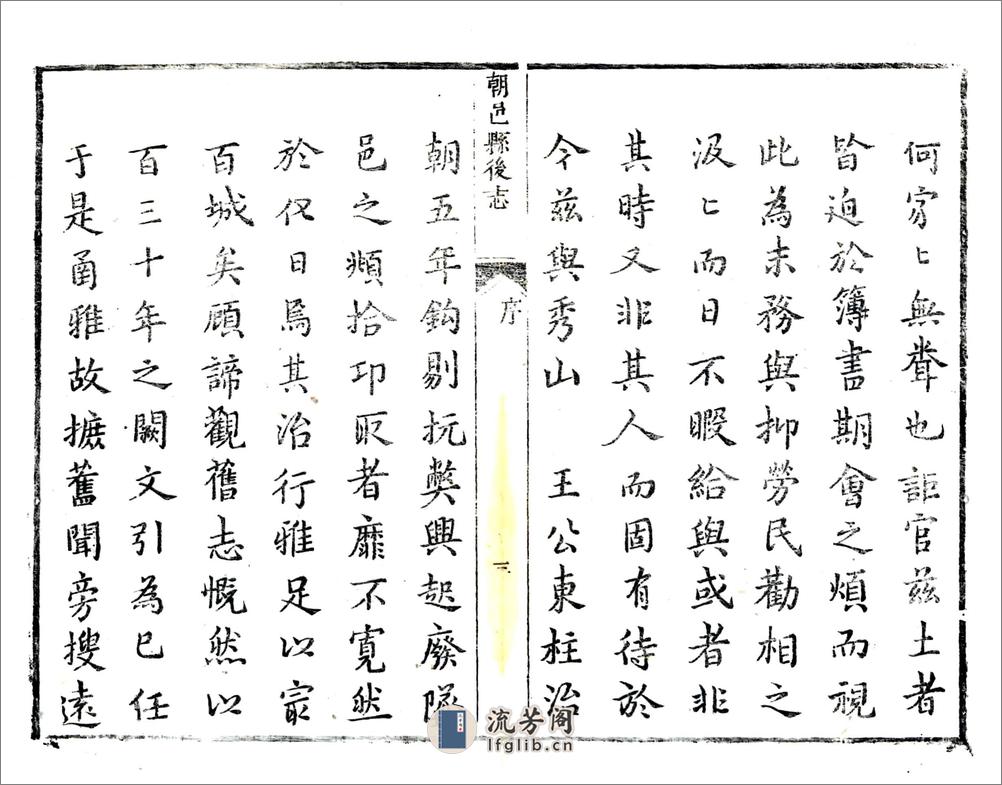 何寥〻無聲也詎官茲土者
皆迫於簿書期會之煩而視
此為末務與抑勞民勸相之
汲〻而日不暇給與或者非
其時又非其人而固有待於
今茲與秀山 王公東柱治
朝邑縣後志
序
三
朝五年鉤剔抏獘興起廢墜
邑之頫拾卬取者靡不寬然
於仅日焉其治行雅足以冣
百城矣顧諦觀舊志慨然以
百三十年之闕文引為己任
于是甬雅故摭舊聞旁搜遠
流芳阁
lfglib.cn